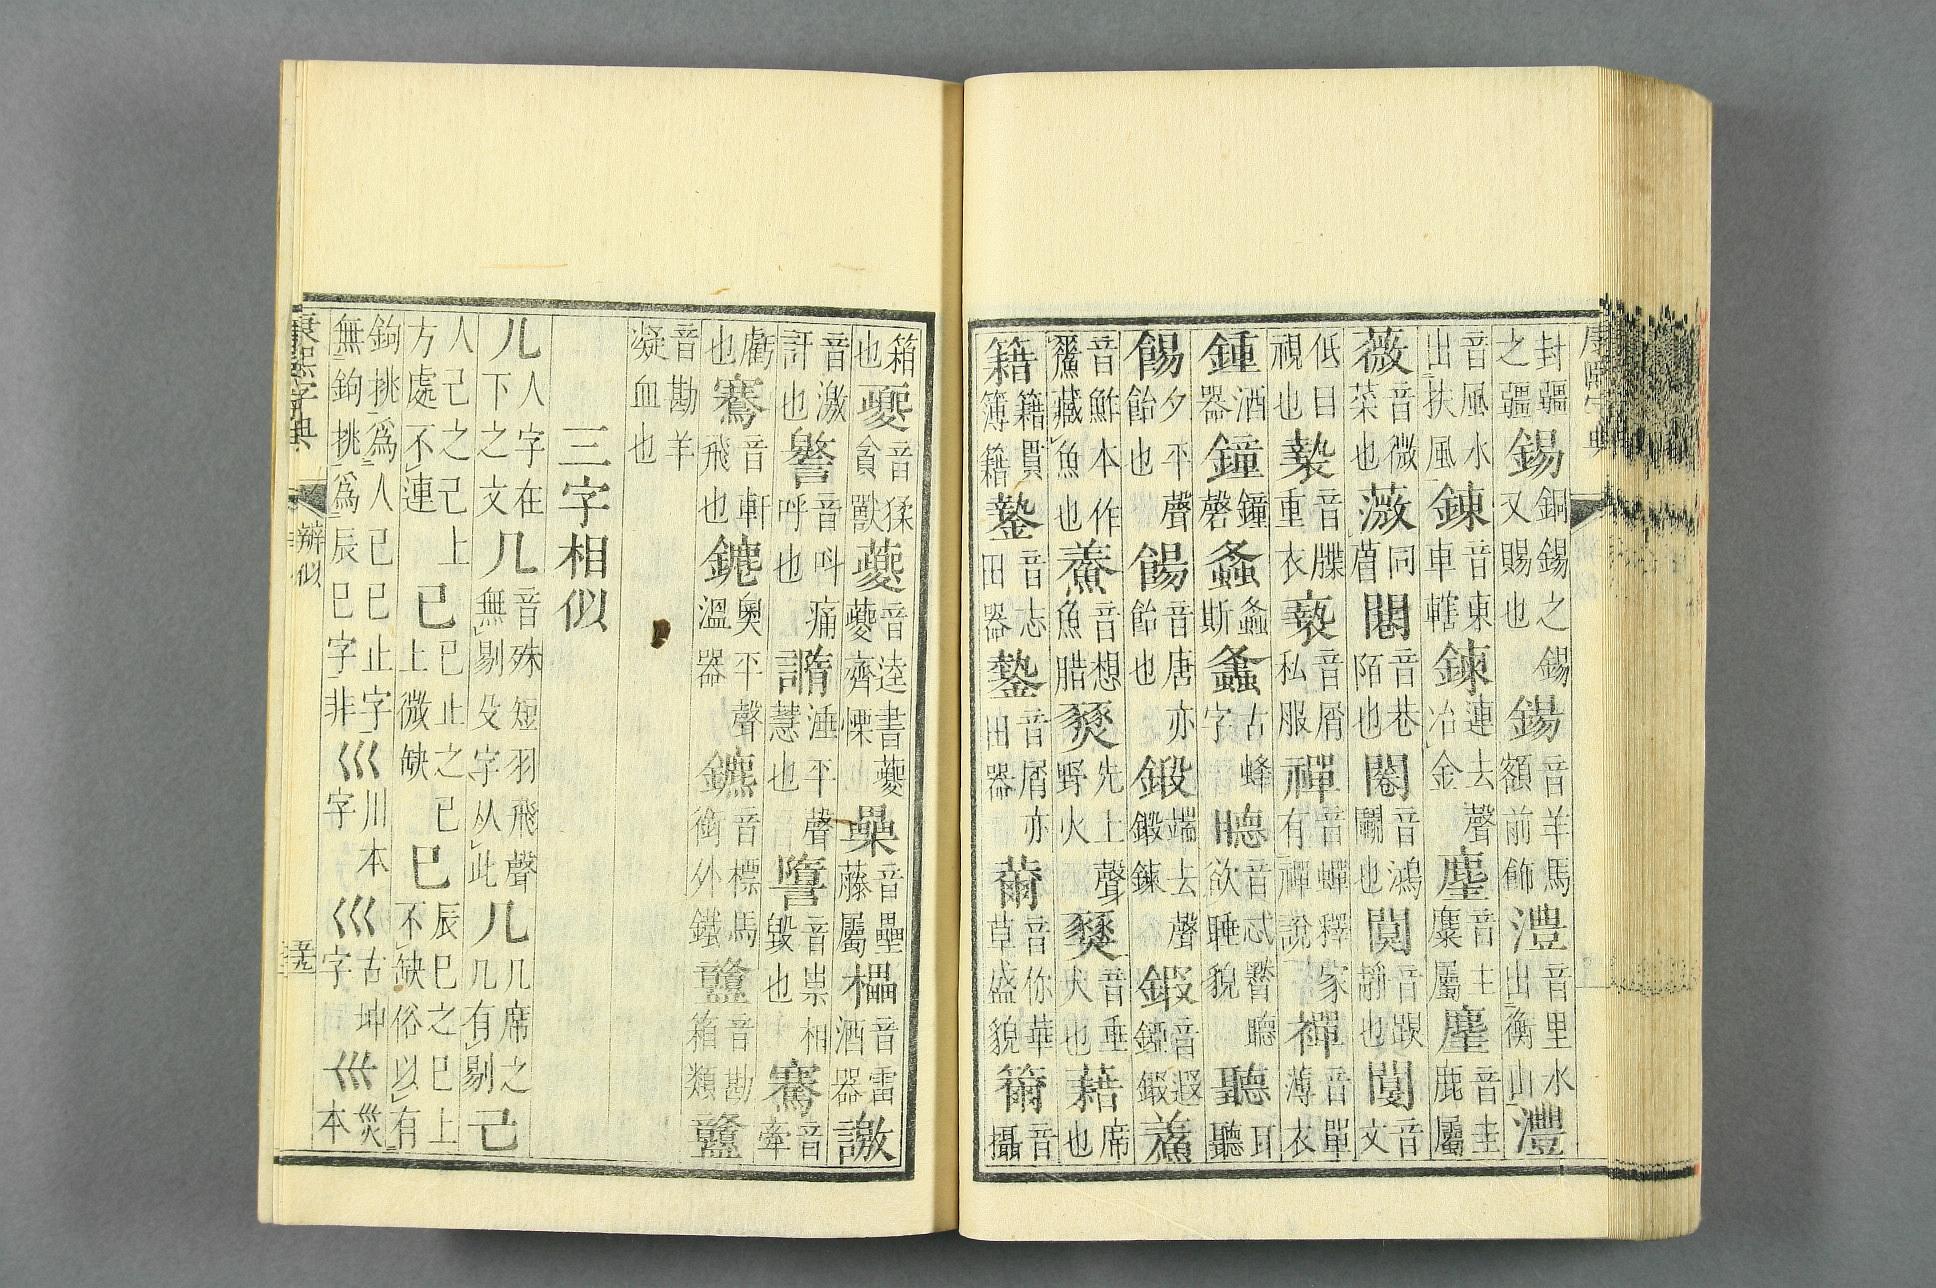 康熙字典
封疆之疆錫銅錫之錫又賜也鍚音羊馬額前飾澧音里水出衡山灃
音風水出扶風錬音東車轄鍊連去聲冶金麈音主麋屬音圭鹿屬
薇音微菜也音巷陌也音鴻鬭也靜也文音
低目視也褺音牒重衣褻音屑私服禪音蟬釋家有禪說襌音單薄衣
鍾酒器鐘鐘磬螽螽斯蠭古蜂字音忒欲睡貌聽耳聽
餳夕平聲飴也餳音唐亦飴也鍛端去聲鍛鍊鍜音遐錏鍜
音鮮本作鱻藏魚也鯗音想魚腊燹先上聲野火音垂火也藉席也
籍籍貫簿籍音志田器音屑亦田器薾音你華草盛貌籋音攝
箱也夒音猱貪獸夔音逵書夔夔齊慄櫐音壘藤屬櫑音雷酒器譤
音激訐也譥音叫痛呼也諈平聲慧也音祟相毀也騫音牽
虧也鶱音軒飛也鏕奧平聲溫器鑣音標馬銜外鐵音勘箱類
音勘羊凝血也
三字相似
儿人字在下之文几音殊短羽飛聲無剔殳字从此几几席之几有剔己
人己之己上方處不連已已止之已上微缺巳辰巳之巳上不缺俗以有
鉤挑爲人已已止字無鉤挑爲辰巳字非巛川本字巛古坤字災本
康熙字典 辨似